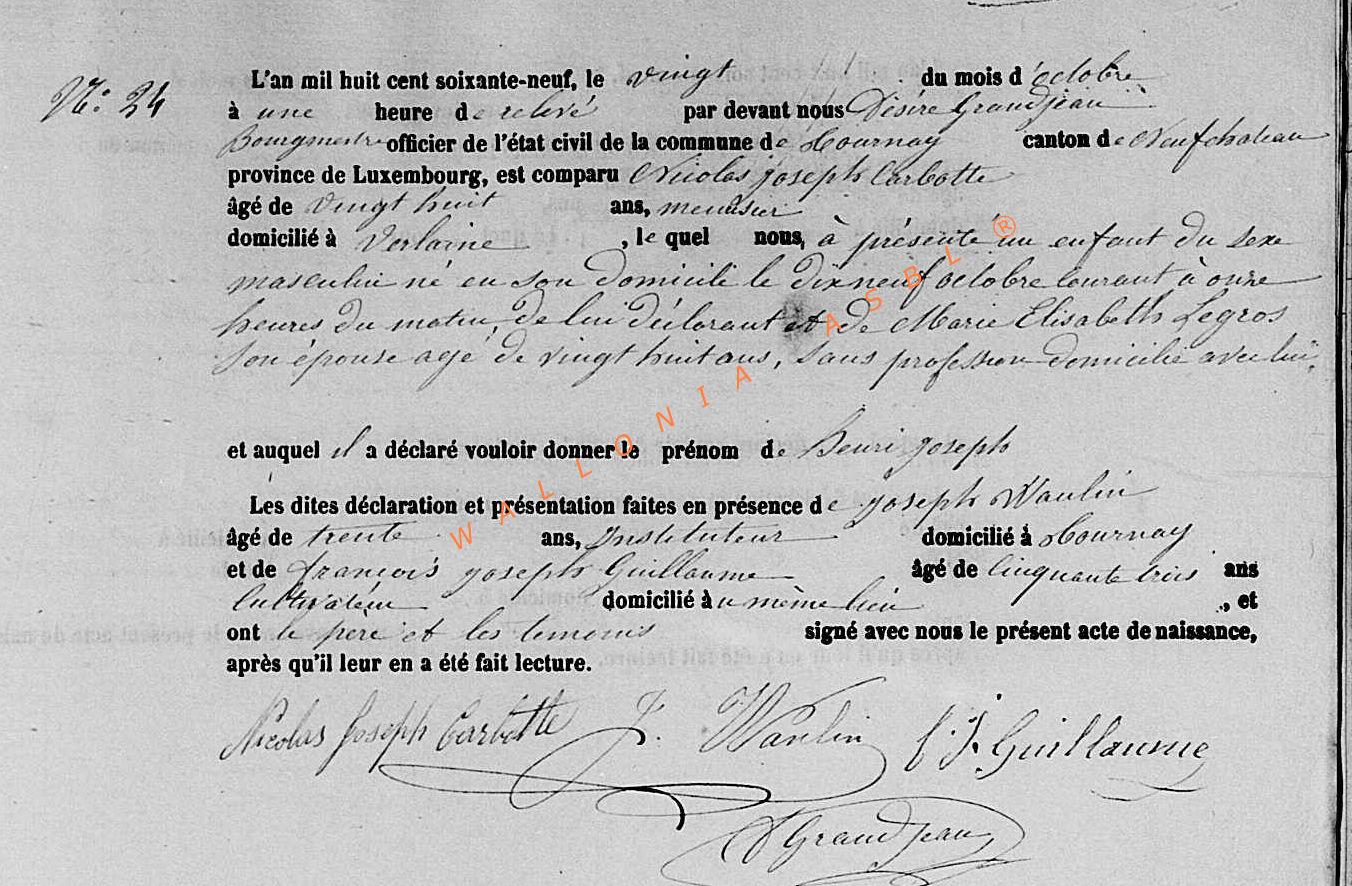 N: 24
L'an mil huit cent soixante-neuf, le vingt du mois d'octobre
à une heure de relevé par devant nous Désiré Grandjean
Bourgmestre officier de l'état civil de la commune de Tournay canton de Neufchateau
province de Luxembourg, est comparu Nicolas Joseph Carbotte
âgé de vingt huit ans, menuisier
domicilié à Verlaine, le quel nous, à présenté un enfant du sexe
masculin né en son domicile le dix neuf octobre courant à onze
heures du matin, de lui déclarant et de Marie Elisabeth Legros
son épouse agé de vingt huit ans, sans profession domicilié avec lui,
et auquel il a déclaré vouloir donner le prénom de Henri Joseph
Les dites déclaration et présentation faites en présence de Joseph Waulin
âgé de trente ans, Instituteur domicilié à Tournay
et de françois Joseph Guillaume âgé de cinquante trois ans
Cultivateur domicilié au même lieu, et
ont le père et les temoins signé avec nous le présent acte de naissance,
après qu'il leur en a été fait lecture.
Nicolas Joseph Carbotte J. Waulin f. J. Guillaume
D Grandjean
WALLONIA ASBL ®